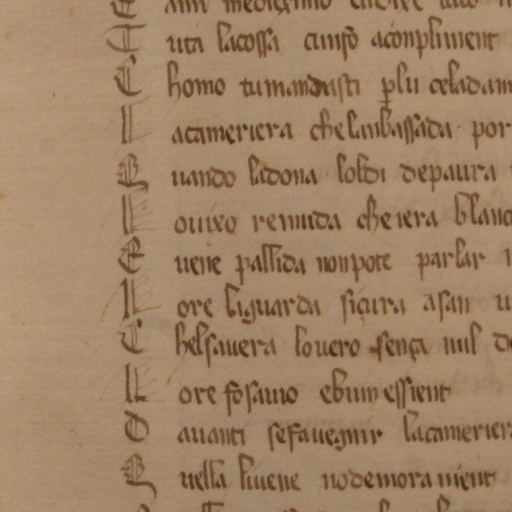 T uta la cossa cunso aconpliment
C homo tu mandasti per lu celadam
L a cameriera che lanbassada por
Q uando la dona loldi de paura
L o uixo remuda che iera blanc
E uene pallida non pote parlar
L o re li guarda sigura a san
C hel sauera lo uero sença nul de
L o re fo sauio e bum essient
D auanti se fa uegnir la camerier
Q uella li uene no demora nient